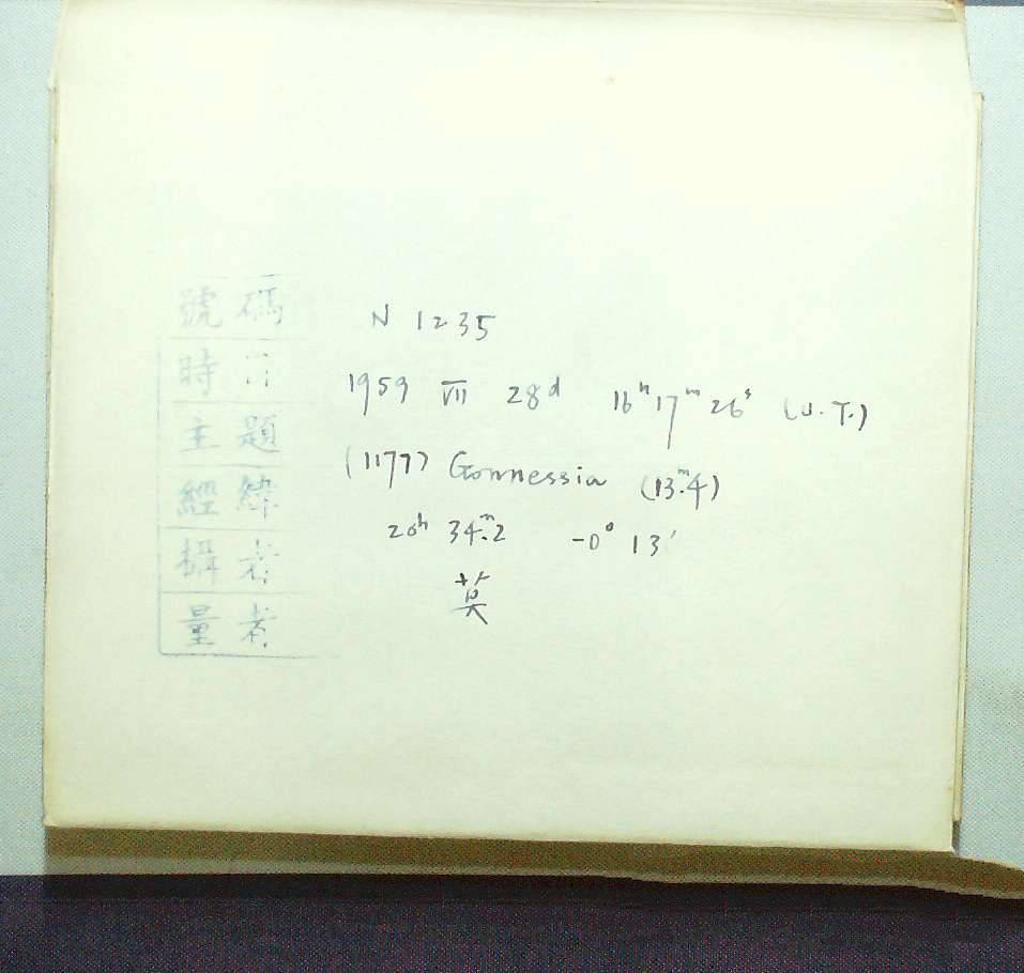 號碼 N 1235
時日 1959 VII 28ᵈ 16ʰ 17ᵐ 26ˢ (U.T.)
主題 (1177) Gonnessia (13ᵐ.4)
經緯 20ʰ 34ᵐ.2 -0° 13′
攝者 莫
量者